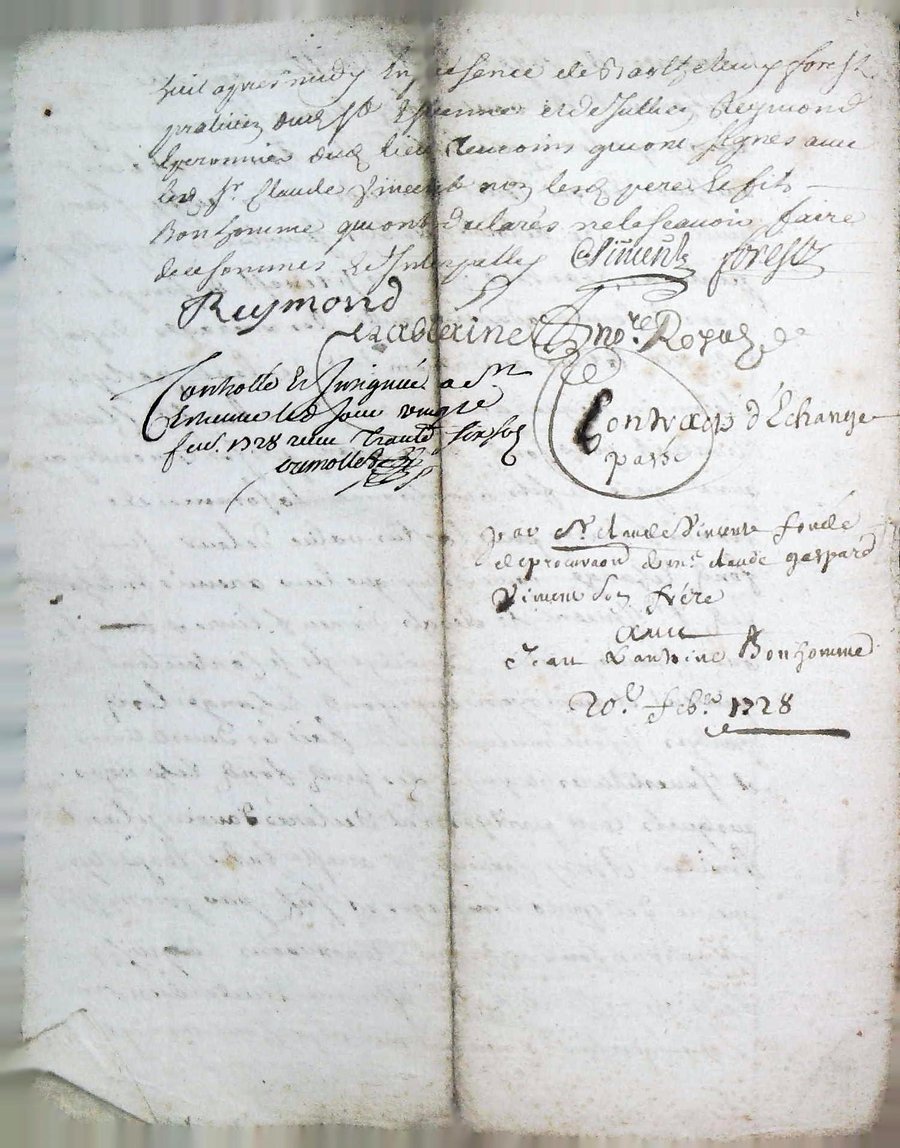 huit apres midy En presence de barthelemy forest
praticien dud St Etienne et de Jullien Reymond
dud lieu temoins qui ont signes avec
led Sr Claude Vincent non lesd pere Et fils
Bonhomme qui ont declarés ne le scavoir faire
de ce sommes Et Interpelles Vincent forest
Reymond
nore Royal
Controllé Et Insignué a St
Etienne led Jour vingt
feu. 1728 receu trante six sols
Contract d'Échange
passé
par Sr Claude Vincent fondé
de procuraon de me claude gaspard
Vincent son frère
avec
Jean Bonhomme
20e feb. 1728